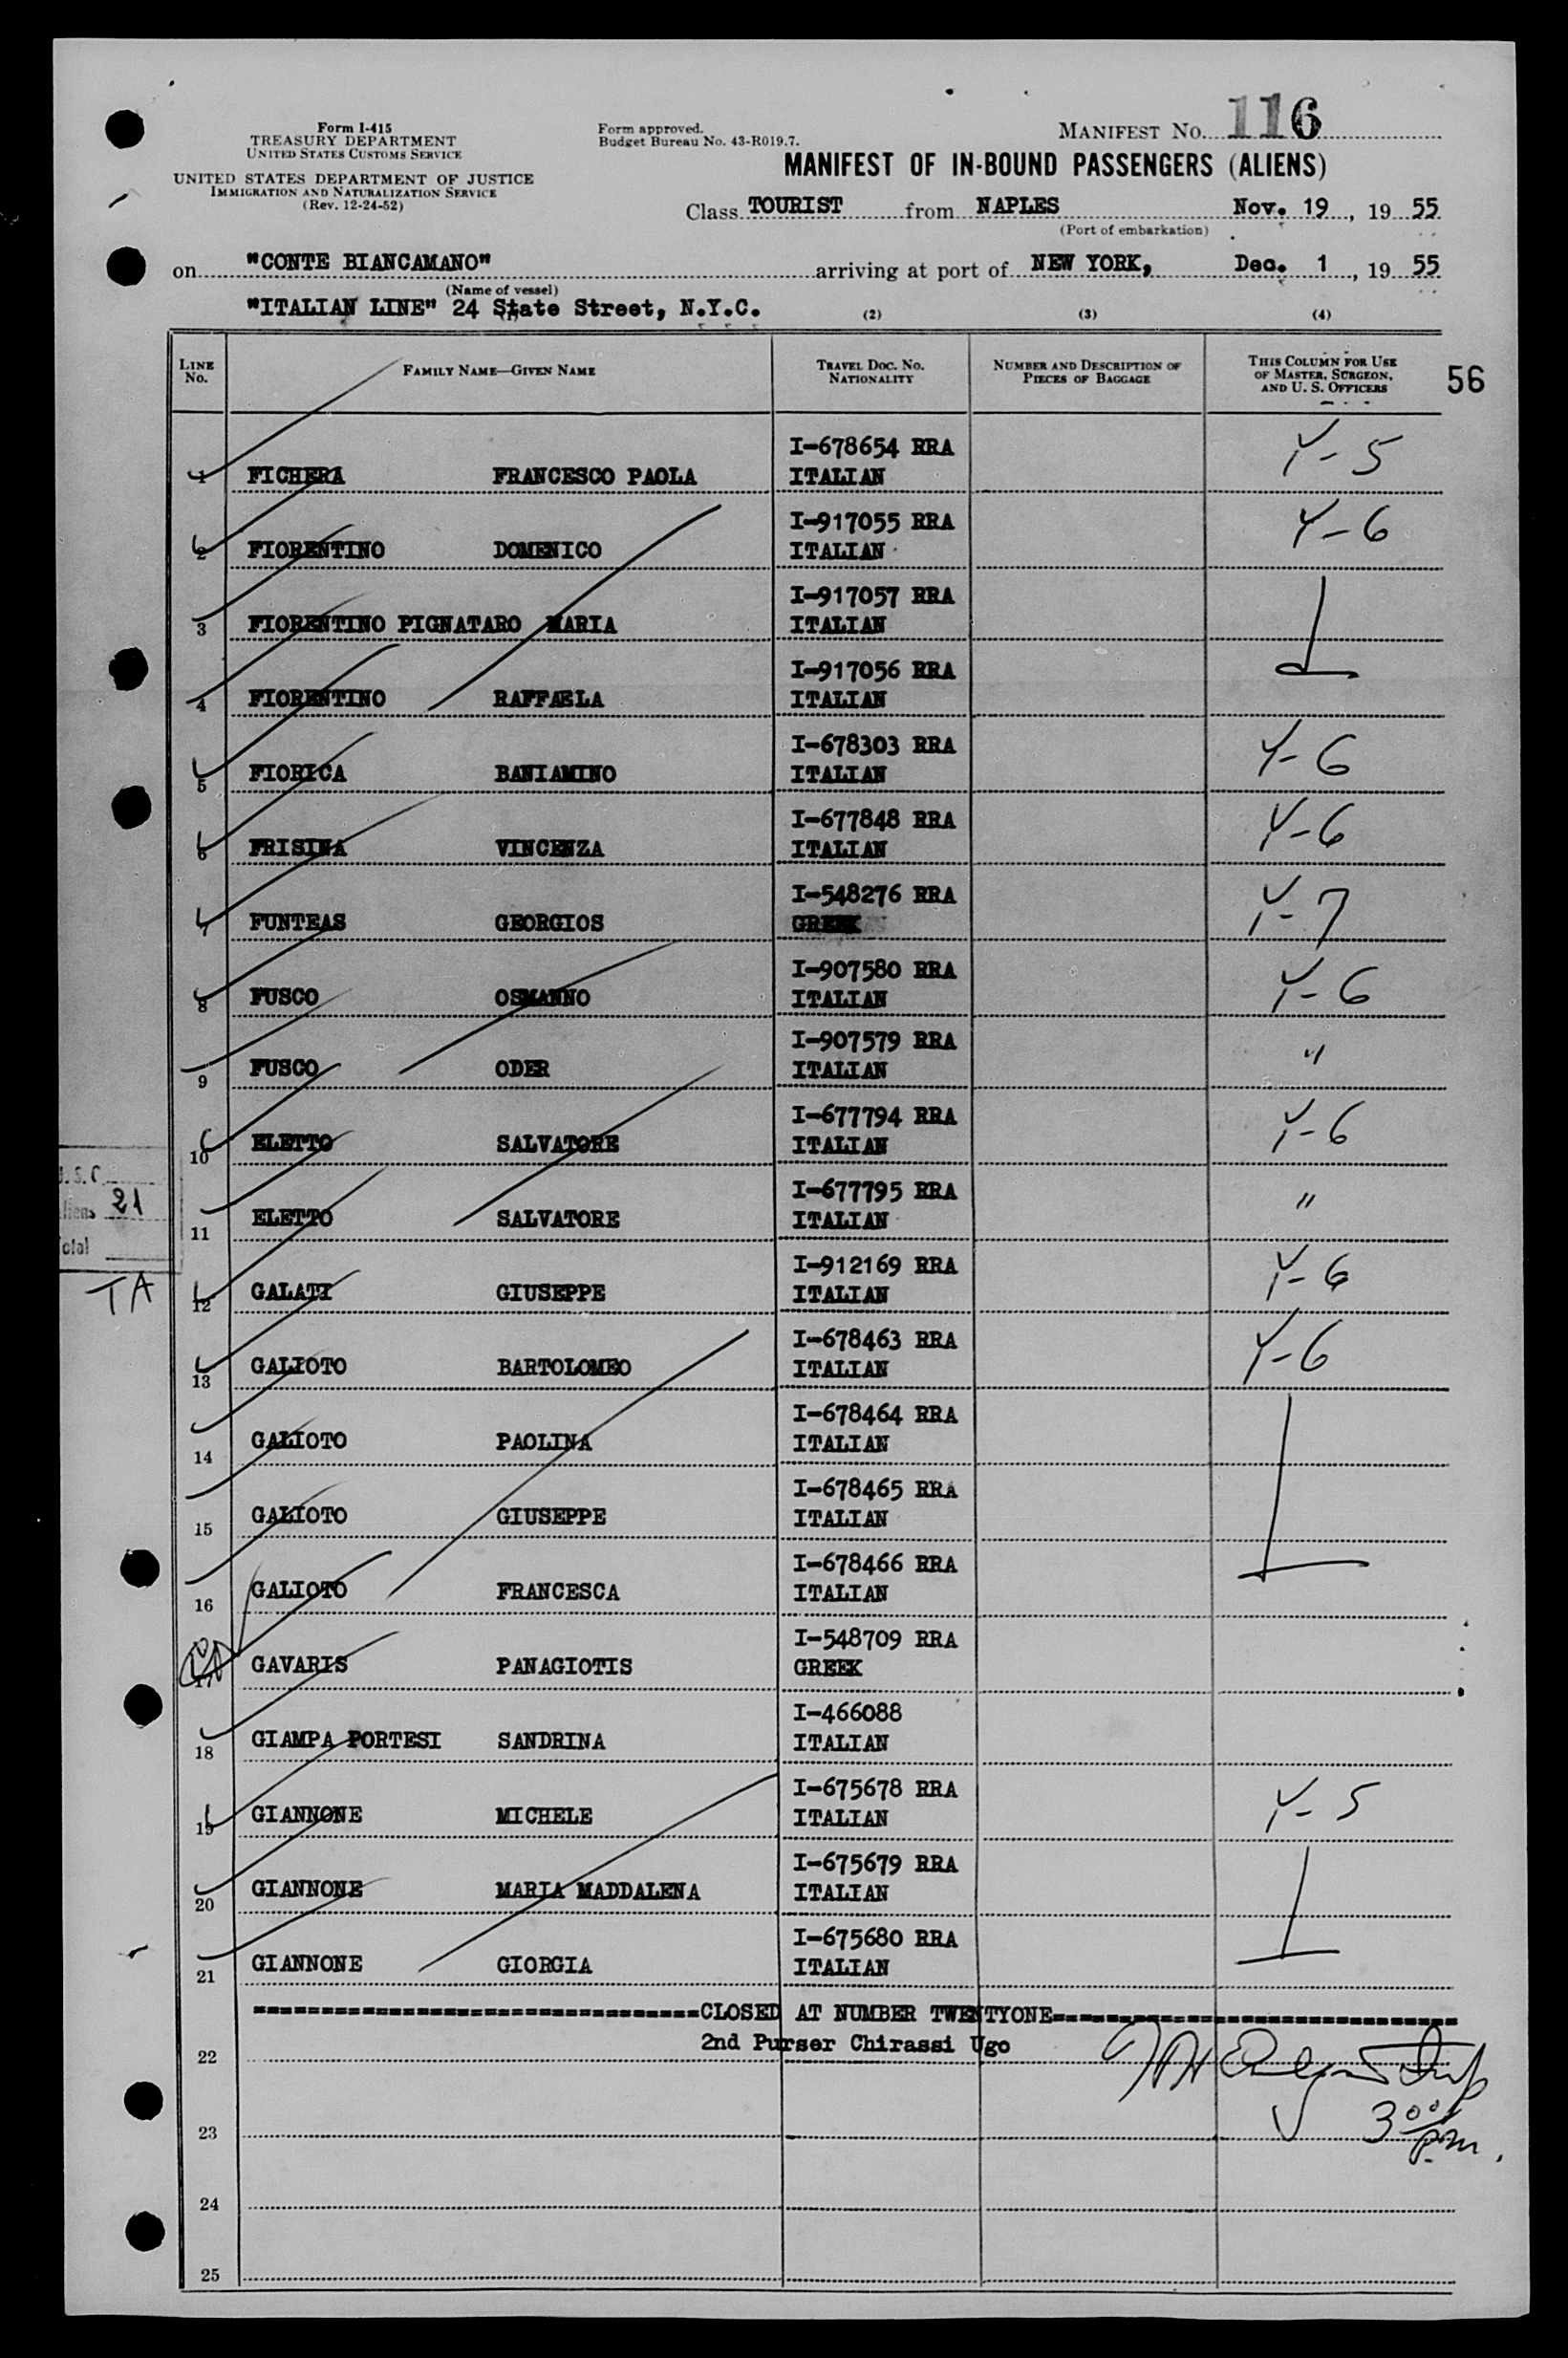 Form I-415
TREASURY DEPARTMENT
UNITED STATES CUSTOMS SERVICE
UNITED STATES DEPARTMENT OF JUSTICE
IMMIGRATION AND NATURALIZATION SERVICE
(Rev. 12-24-52)
Form approved.
Budget Bureau No. 43-R019.7.
MANIFEST No. 116
MANIFEST OF IN-BOUND PASSENGERS (ALIENS)
Class TOURIST from NAPLES Nov. 19, 1955
(Port of embarkation)
on "CONTE BIANCAMANO" arriving at port of NEW YORK, Dec. 1, 1955
(Name of vessel)
"ITALIAN LINE" 24 State Street, N.Y.C.
(1) (2) (3) (4)
LINE No. FAMILY NAME—GIVEN NAME TRAVEL DOC. NO. NATIONALITY NUMBER AND DESCRIPTION OF PIECES OF BAGGAGE THIS COLUMN FOR USE OF MASTER, SURGEON, AND U. S. OFFICERS
56
I-678654 RRA Y-5
1 FICHERA FRANCESCO PAOLA ITALIAN
I-917055 RRA Y-6
2 FIORENTINO DOMENICO ITALIAN
I-917057 RRA
3 FIORENTINO PIGNATARO MARIA ITALIAN
I-917056 RRA
4 FIORENTINO RAFFAELA ITALIAN
I-678303 RRA Y-6
5 FIORICA BANIAMINO ITALIAN
I-677848 RRA Y-6
6 FRISINA VINCENZA ITALIAN
I-548276 RRA Y-7
7 FUNTEAS GEORGIOS GREEK
I-907580 RRA Y-6
8 FUSCO OSMANNO ITALIAN
I-907579 RRA "
9 FUSCO ODER ITALIAN
I-677794 RRA Y-6
10 ELETTO SALVATORE ITALIAN
I-677795 RRA "
11 ELETTO SALVATORE ITALIAN
I-912169 RRA Y-6
12 GALATI GIUSEPPE ITALIAN
I-678463 RRA Y-6
13 GALIOTO BARTOLOMEO ITALIAN
I-678464 RRA
14 GALIOTO PAOLINA ITALIAN
I-678465 RRA
15 GALIOTO GIUSEPPE ITALIAN
I-678466 RRA
16 GALIOTO FRANCESCA ITALIAN
I-548709 RRA
17 GAVARIS PANAGIOTIS GREEK
I-466088
18 GIAMPA PORTESI SANDRINA ITALIAN
I-675678 RRA Y-5
19 GIANNONE MICHELE ITALIAN
I-675679 RRA
20 GIANNONE MARIA MADDALENA ITALIAN
I-675680 RRA
21 GIANNONE GIORGIA ITALIAN
CLOSED AT NUMBER TWENTYONE
2nd Purser Chirassi Ugo
22
23
3 00 p.m.
24
25
21
TA